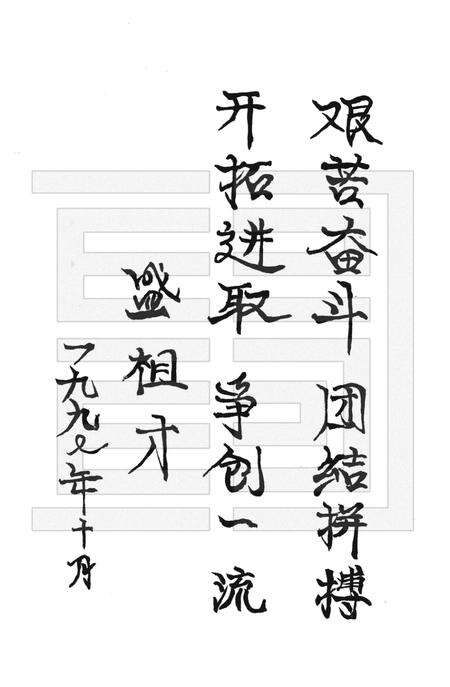 艰苦奋斗 团结拼搏
开拓进取 争创一流
盛祖才
一九九七年十月